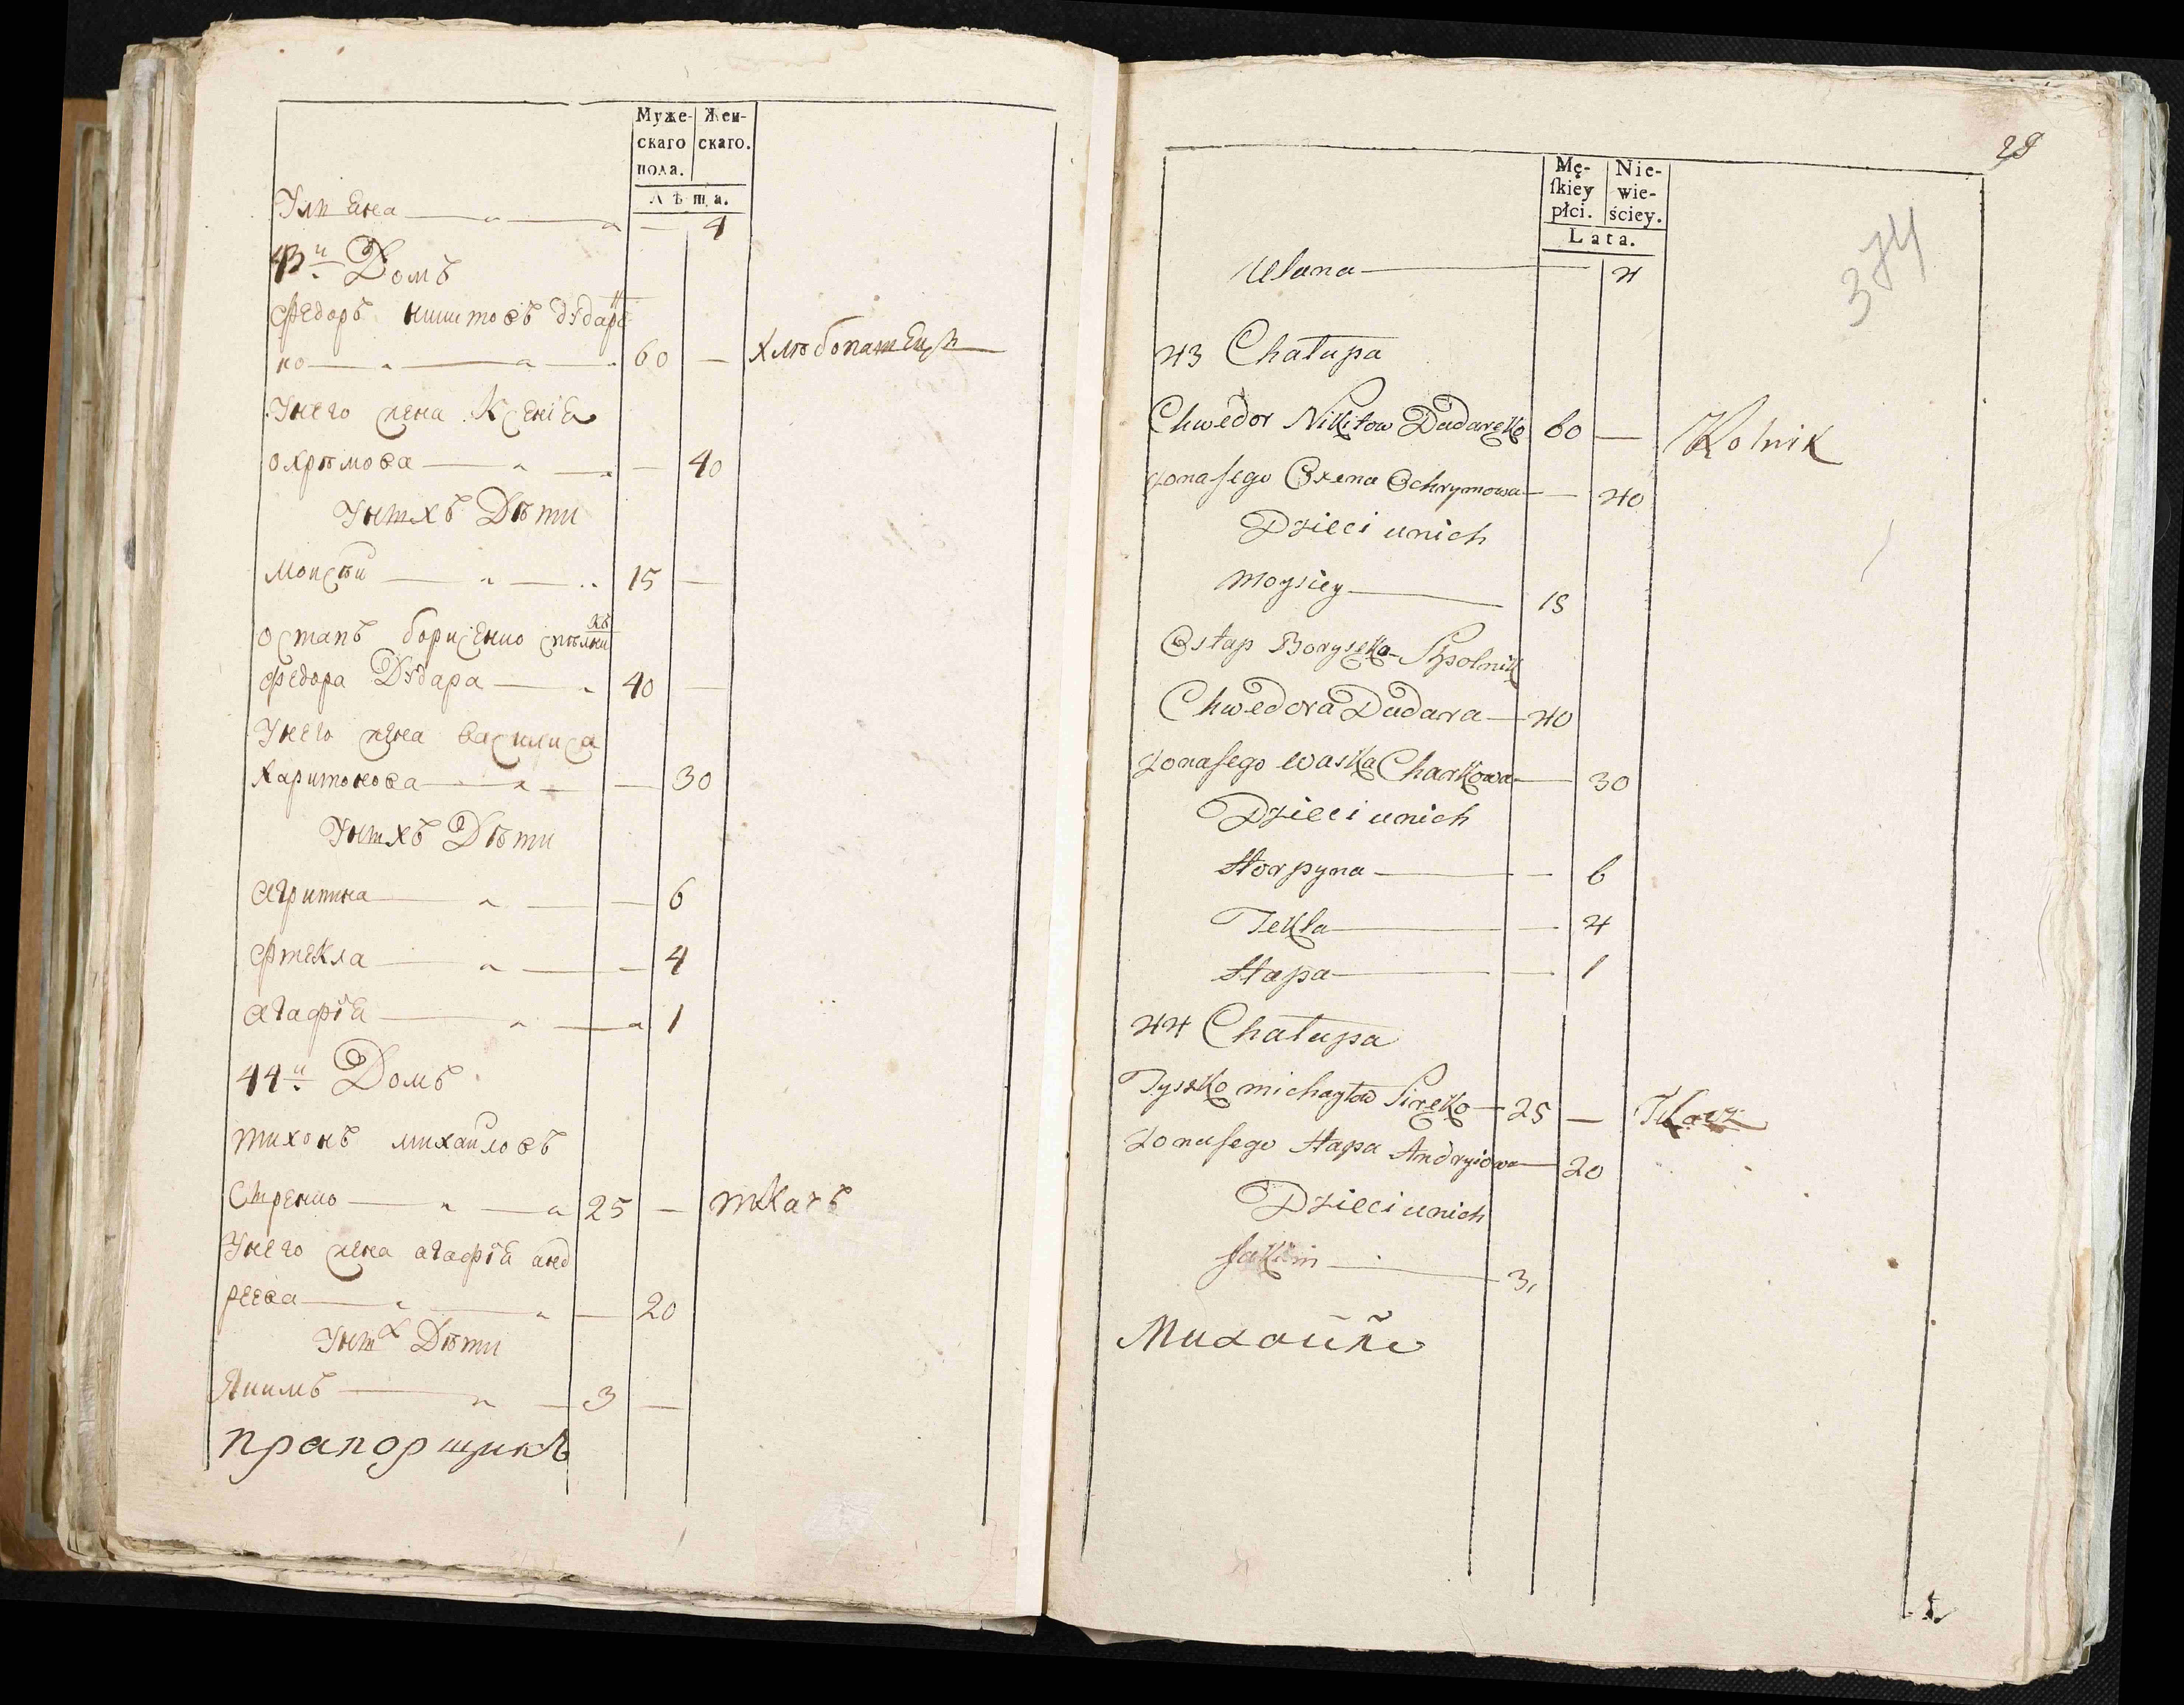 Муже- Жен-
скаго скаго.
пола.
Лѣта.
Улiяна — 4
43й Домъ
Федоръ Никитовъ Дударен
ко — 60 — хлѣбопашецъ
У него жена Ксенiя
Охрѣмова — 40
У нихъ Дѣти
Моисѣй — 15 —
Остапъ Борисенко спѣлникъ
Федора Дудара — 40 —
У него жена Василиса
Харитонова — 30
У нихъ Дѣти
Агрипина — 6
Фтекла — 4
Агафiя — 1
44й Домъ
Тихонъ Михайловъ
Стренко — 25 — ткачъ
У него жена Агафiя Анд
реева — 20
У них Дѣти
Якимъ — 3 —
прапорщикъ
28
374
Mę- Nie-
ſkiey wie-
płci. ściey.
Lata.
Ulana — 4
43 Chałupa
Chwedor Nikitow Dudareko 60 — Rolnik
Zona jego Oxena Ochrymowa — 40
Dzieci unich
Moysiey — 15
Ostap Boryseko Spolnik
Chwedora Dudara — 40
Zona jego Waska Charkowa — 30
Dzieci unich
Horpyna — 6
Tekla — 4
Hapa — 1
44 Chałupa
Tyszko Michayłow Sireko — 25 — Tkacz
Zona jego Hapa Andryiowa — 20
Dzieci unich
Jakim — 3
Михайло